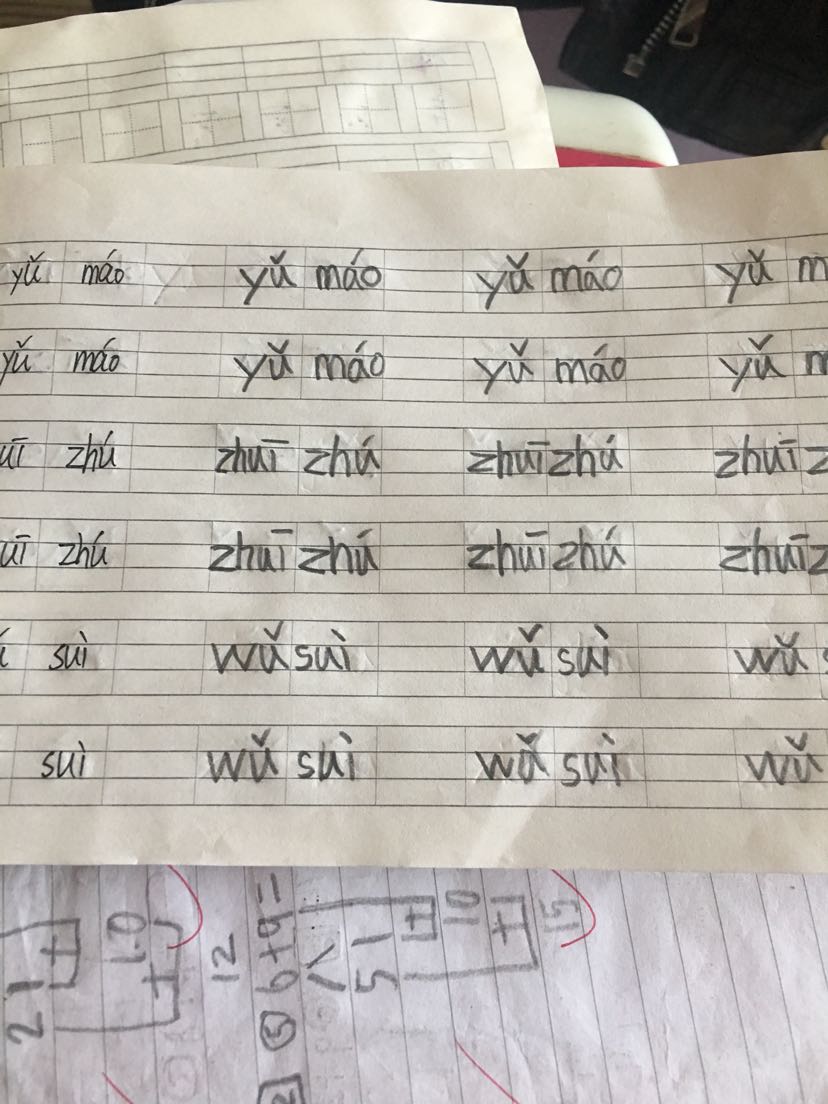 yǔ máo yǔ máo yǔ máo yǔ m
yǔ máo yǔ máo yǔ máo yǔ m
uī zhú zhuī zhú zhuī zhú zhuī z
uī zhú zhuī zhú zhuī zhú zhuī z
suì wǔ suì wǔ suì wǔ s
suì wǔ suì wǔ suì wǔ
2 1 10 12
⑤ 6+9=
5 1 10 15